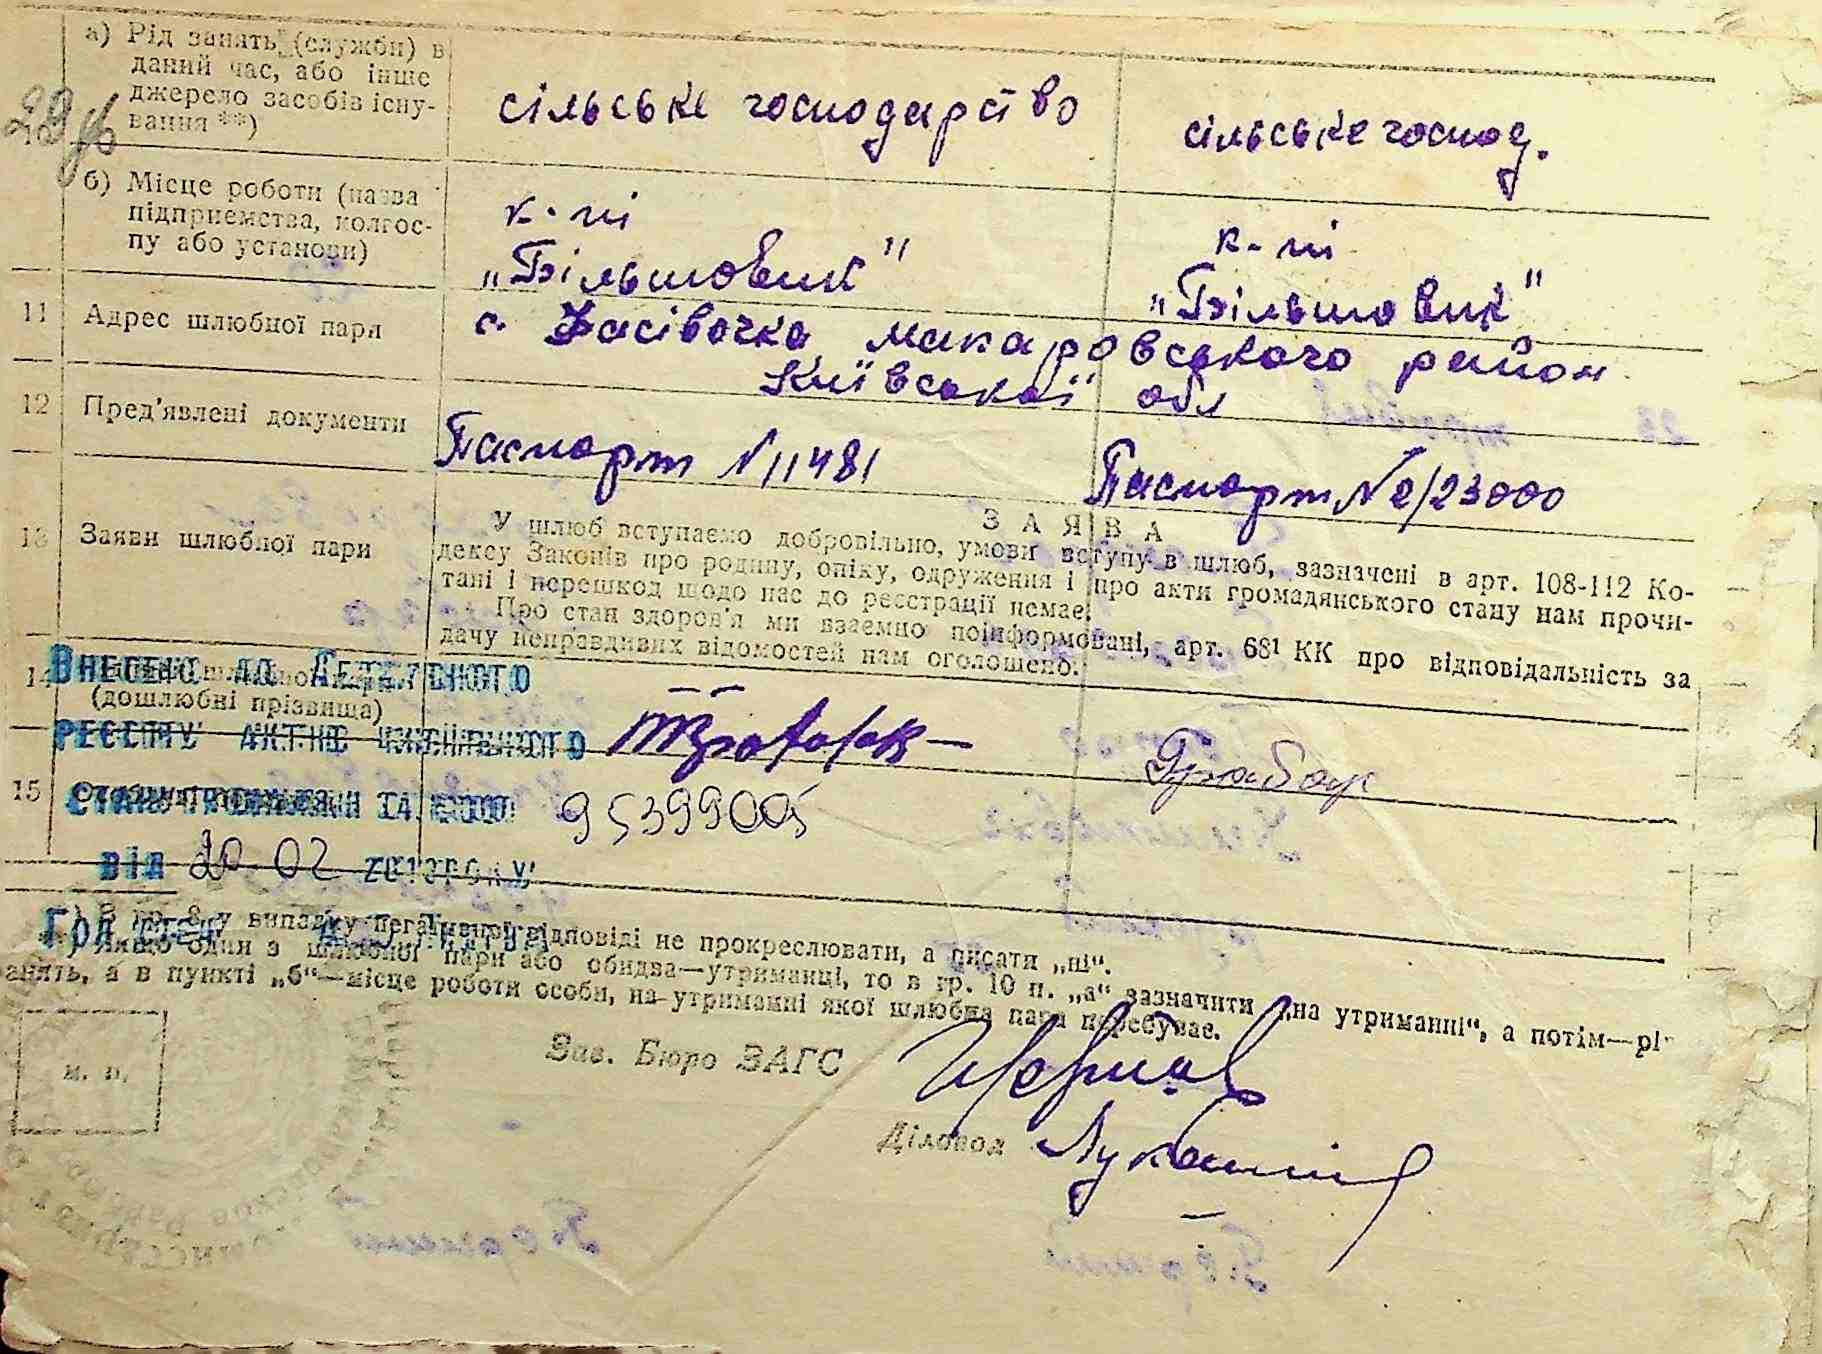 а) Рід занять (служби) в
даний час, або інше
джерело засобів існу-
вання **)
сільське господарство
сільське господ.
б) Місце роботи (назва
підприємства, колгос-
пу або установи)
к-ні
„Більшовик"
к-ні
„Більшовик"
11 Адрес шлюбної пари
с. Фасівочка, макаровського район
Київської обл
12 Пред'явлені документи
Паспорт № 11481
Паспорт № 2/23000
13 Заяви шлюбної пари
ЗАЯВА
У шлюб вступаємо добровільно, умови вступу в шлюб, зазначені в арт. 108-112 Ко-
дексу Законів про родину, опіку, одруження і про акти громадянського стану нам прочи-
тані і перешкод щодо нас до реєстрації немає.
Про стан здоров'я ми взаємно поінформовані, арт. 68¹ КК про відповідальність за
дачу неправдивих відомостей нам оголошено.
14
(дошлюбні прізвища)
Грабар
Внесено до Державного
реєстру актів цивільного
стану громадян за №
95399005
15
від 20 02 року
*) В гр. 8 у випадку негативної відповіді не прокреслювати, а писати „ні".
Якщо один з шлюбної пари або обидва—утриманці, то в гр. 10 п. „а" зазначити „на утриманні", а потім—рі
анять, а в пункті „б"—місце роботи особи, на утриманні якої шлюбна пара перебуває.
Зав. Бюро ЗАГС
м. п.
Діловод